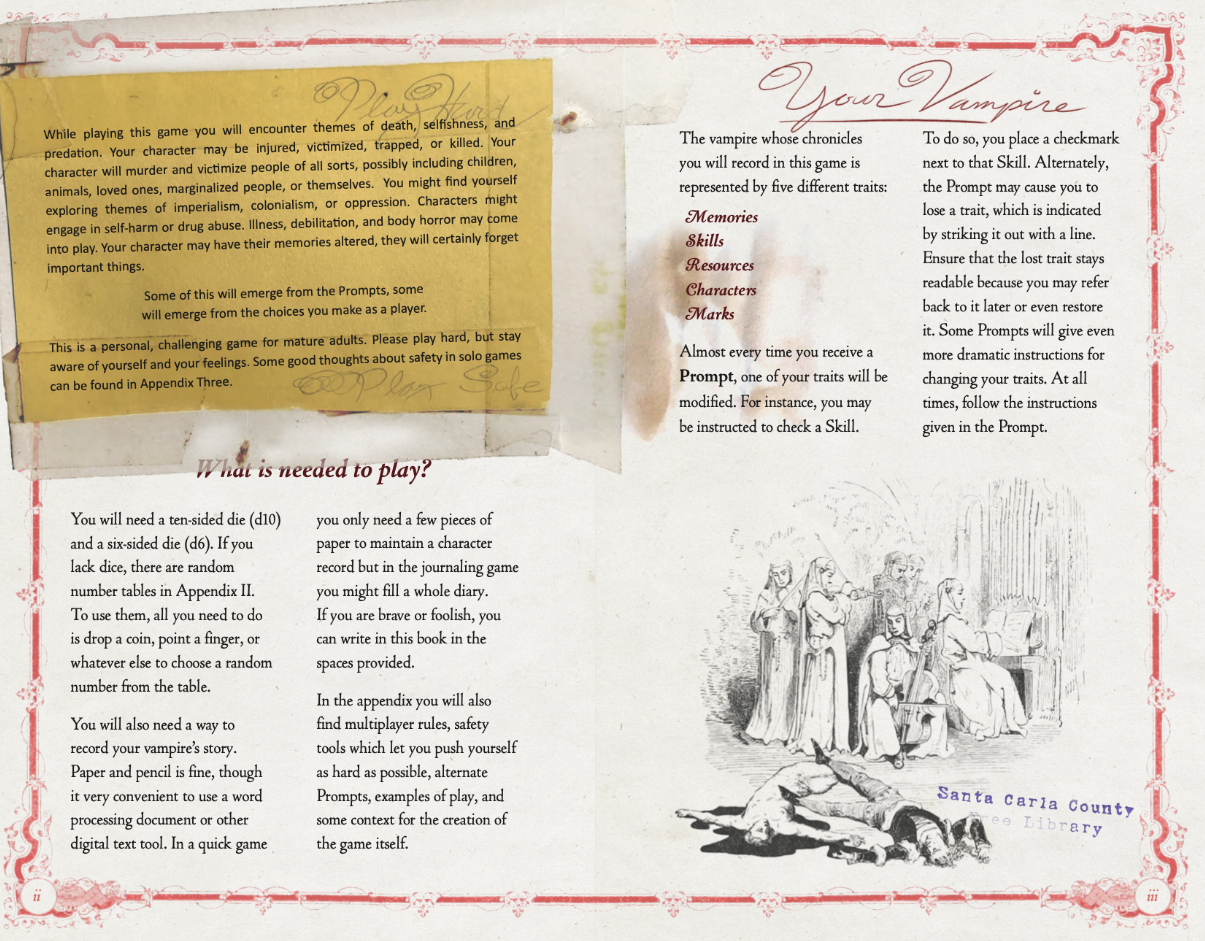 Play Hard
While playing this game you will encounter themes of death, selfishness, and
predation. Your character may be injured, victimized, trapped, or killed. Your
character will murder and victimize people of all sorts, possibly including children,
animals, loved ones, marginalized people, or themselves. You might find yourself
exploring themes of imperialism, colonialism, or oppression. Characters might
engage in self-harm or drug abuse. Illness, debilitation, and body horror may come
into play. Your character may have their memories altered, they will certainly forget
important things.
Some of this will emerge from the Prompts, some
will emerge from the choices you make as a player.
This is a personal, challenging game for mature adults. Please play hard, but stay
aware of yourself and your feelings. Some good thoughts about safety in solo games
can be found in Appendix Three.
Play Safe
What is needed to play?
You will need a ten-sided die (d10)
and a six-sided die (d6). If you
lack dice, there are random
number tables in Appendix II.
To use them, all you need to do
is drop a coin, point a finger, or
whatever else to choose a random
number from the table.
You will also need a way to
record your vampire's story.
Paper and pencil is fine, though
it very convenient to use a word
processing document or other
digital text tool. In a quick game
you only need a few pieces of
paper to maintain a character
record but in the journaling game
you might fill a whole diary.
If you are brave or foolish, you
can write in this book in the
spaces provided.
In the appendix you will also
find multiplayer rules, safety
tools which let you push yourself
as hard as possible, alternate
Prompts, examples of play, and
some context for the creation of
the game itself.
ii
Your Vampire
The vampire whose chronicles
you will record in this game is
represented by five different traits:
Memories
Skills
Resources
Characters
Marks
Almost every time you receive a
Prompt, one of your traits will be
modified. For instance, you may
be instructed to check a Skill.
To do so, you place a checkmark
next to that Skill. Alternately,
the Prompt may cause you to
lose a trait, which is indicated
by striking it out with a line.
Ensure that the lost trait stays
readable because you may refer
back to it later or even restore
it. Some Prompts will give even
more dramatic instructions for
changing your traits. At all
times, follow the instructions
given in the Prompt.
Santa Carla County
Free Library
iii